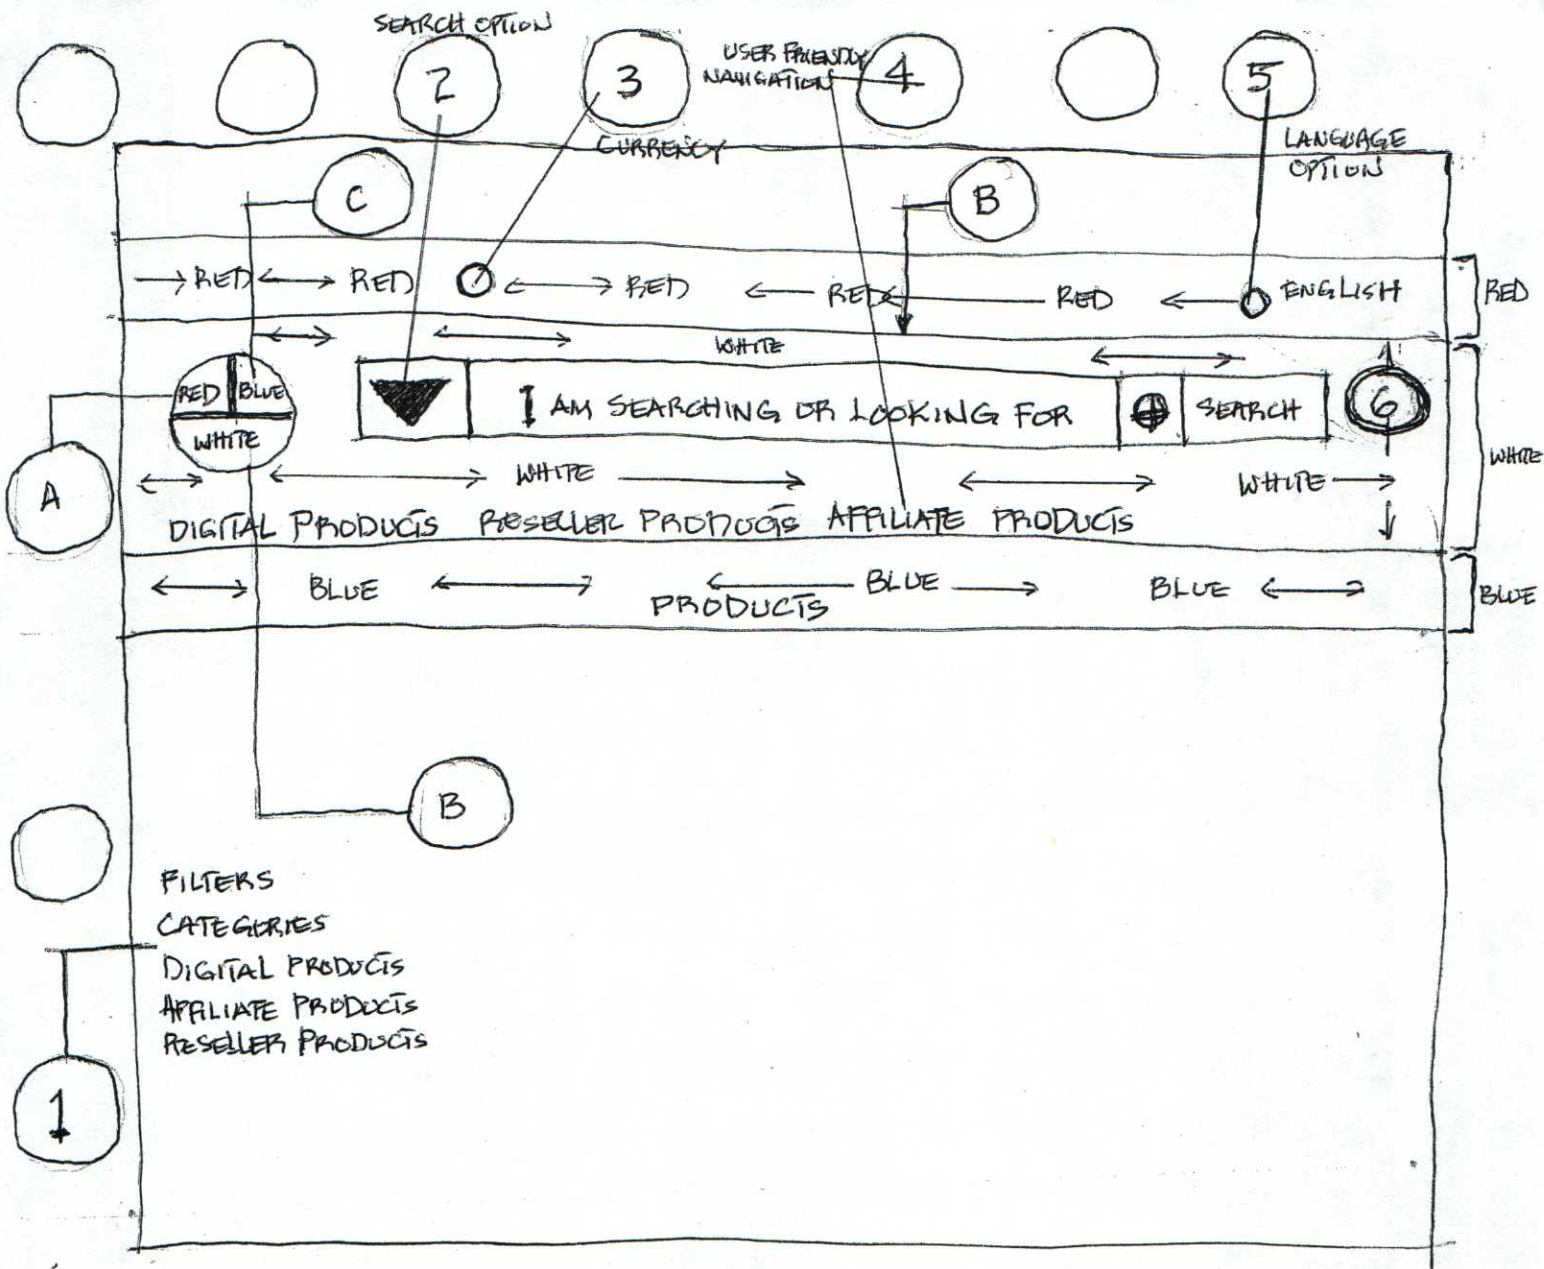 SEARCH OPTION
2
3
USER FRIENDLY
NAVIGATION
4
5
CURRENCY
LANGUAGE
OPTION
C
B
RED RED RED RED RED ENGLISH RED
WHITE
RED BLUE
WHITE
I AM SEARCHING OR LOOKING FOR
SEARCH
6
A
WHITE WHITE WHITE
DIGITAL PRODUCTS RESELLER PRODUCTS AFFILIATE PRODUCTS
BLUE BLUE BLUE BLUE
PRODUCTS
B
FILTERS
CATEGORIES
DIGITAL PRODUCTS
AFFILIATE PRODUCTS
RESELLER PRODUCTS
1